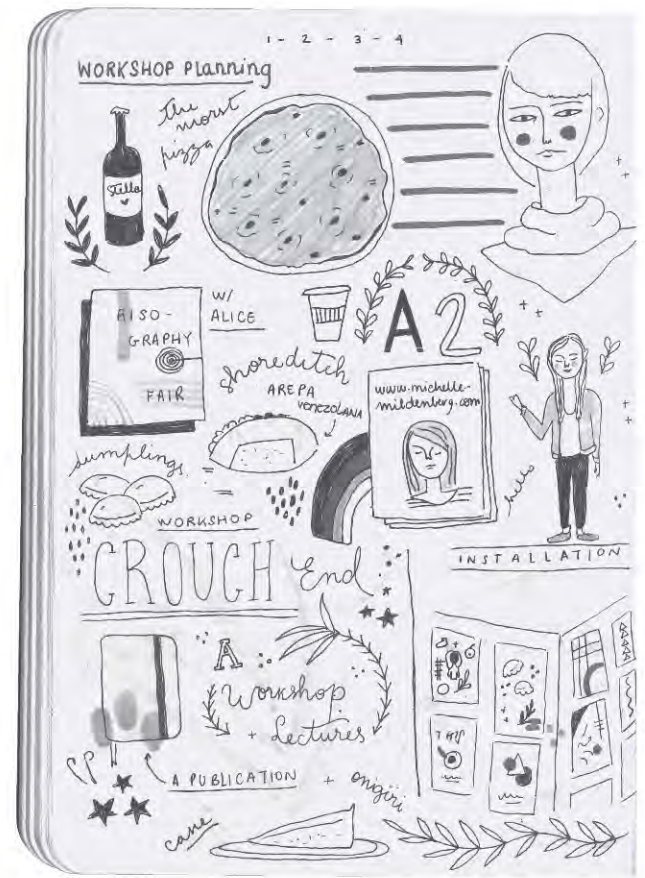 1 - 2 - 3 - 4
WORKSHOP Planning
the
worst
pizza
Stella
RISO-
GRAPHY
FAIR
W/
ALICE
A2
shoreditch
AREPA
VENEZOLANA
www.michelle-
mildenberg.com
hello
dumplings
WORKSHOP
CROUCH End
INSTALLATION
A
Workshop
+ Lectures
A PUBLICATION + onigiri
cake